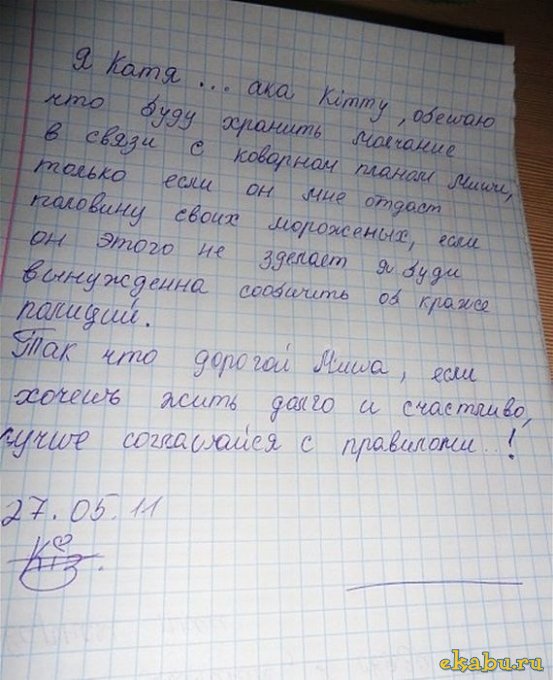 Я Катя ... ака Кітту, обешаю
что буду хранить малчание
в связи с коварном планам Миши,
только если он мне отдаст
половину своих мороженых, если
он этого не зделает я буди
вынужденна сообичить об краже
палиций.
Так что дорогой Миша, если
хочешь жить долго и счастливо,
лучше соглашайся с правилами..!
27.05.11
ekabu.ru